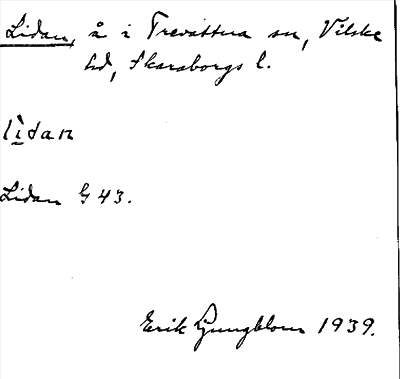 Lidan, å i Trevattna sn, Vilske
hd, Skaraborgs l.
lìdan
Lidan G 43.
Erik Ljungblom 1939.